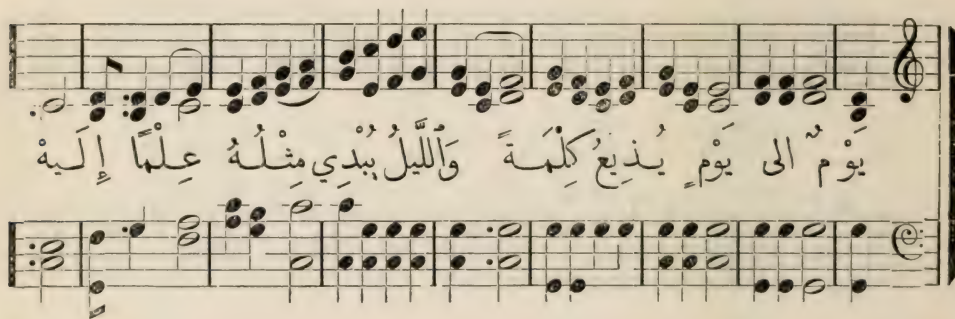 يَوْمٌ الى يَوْمٍ يُذِيعُ كِلْمَةً وَٱللَّيلُ يُبْدِي مِثْلُهُ عِلْمًا إِلَيهْ